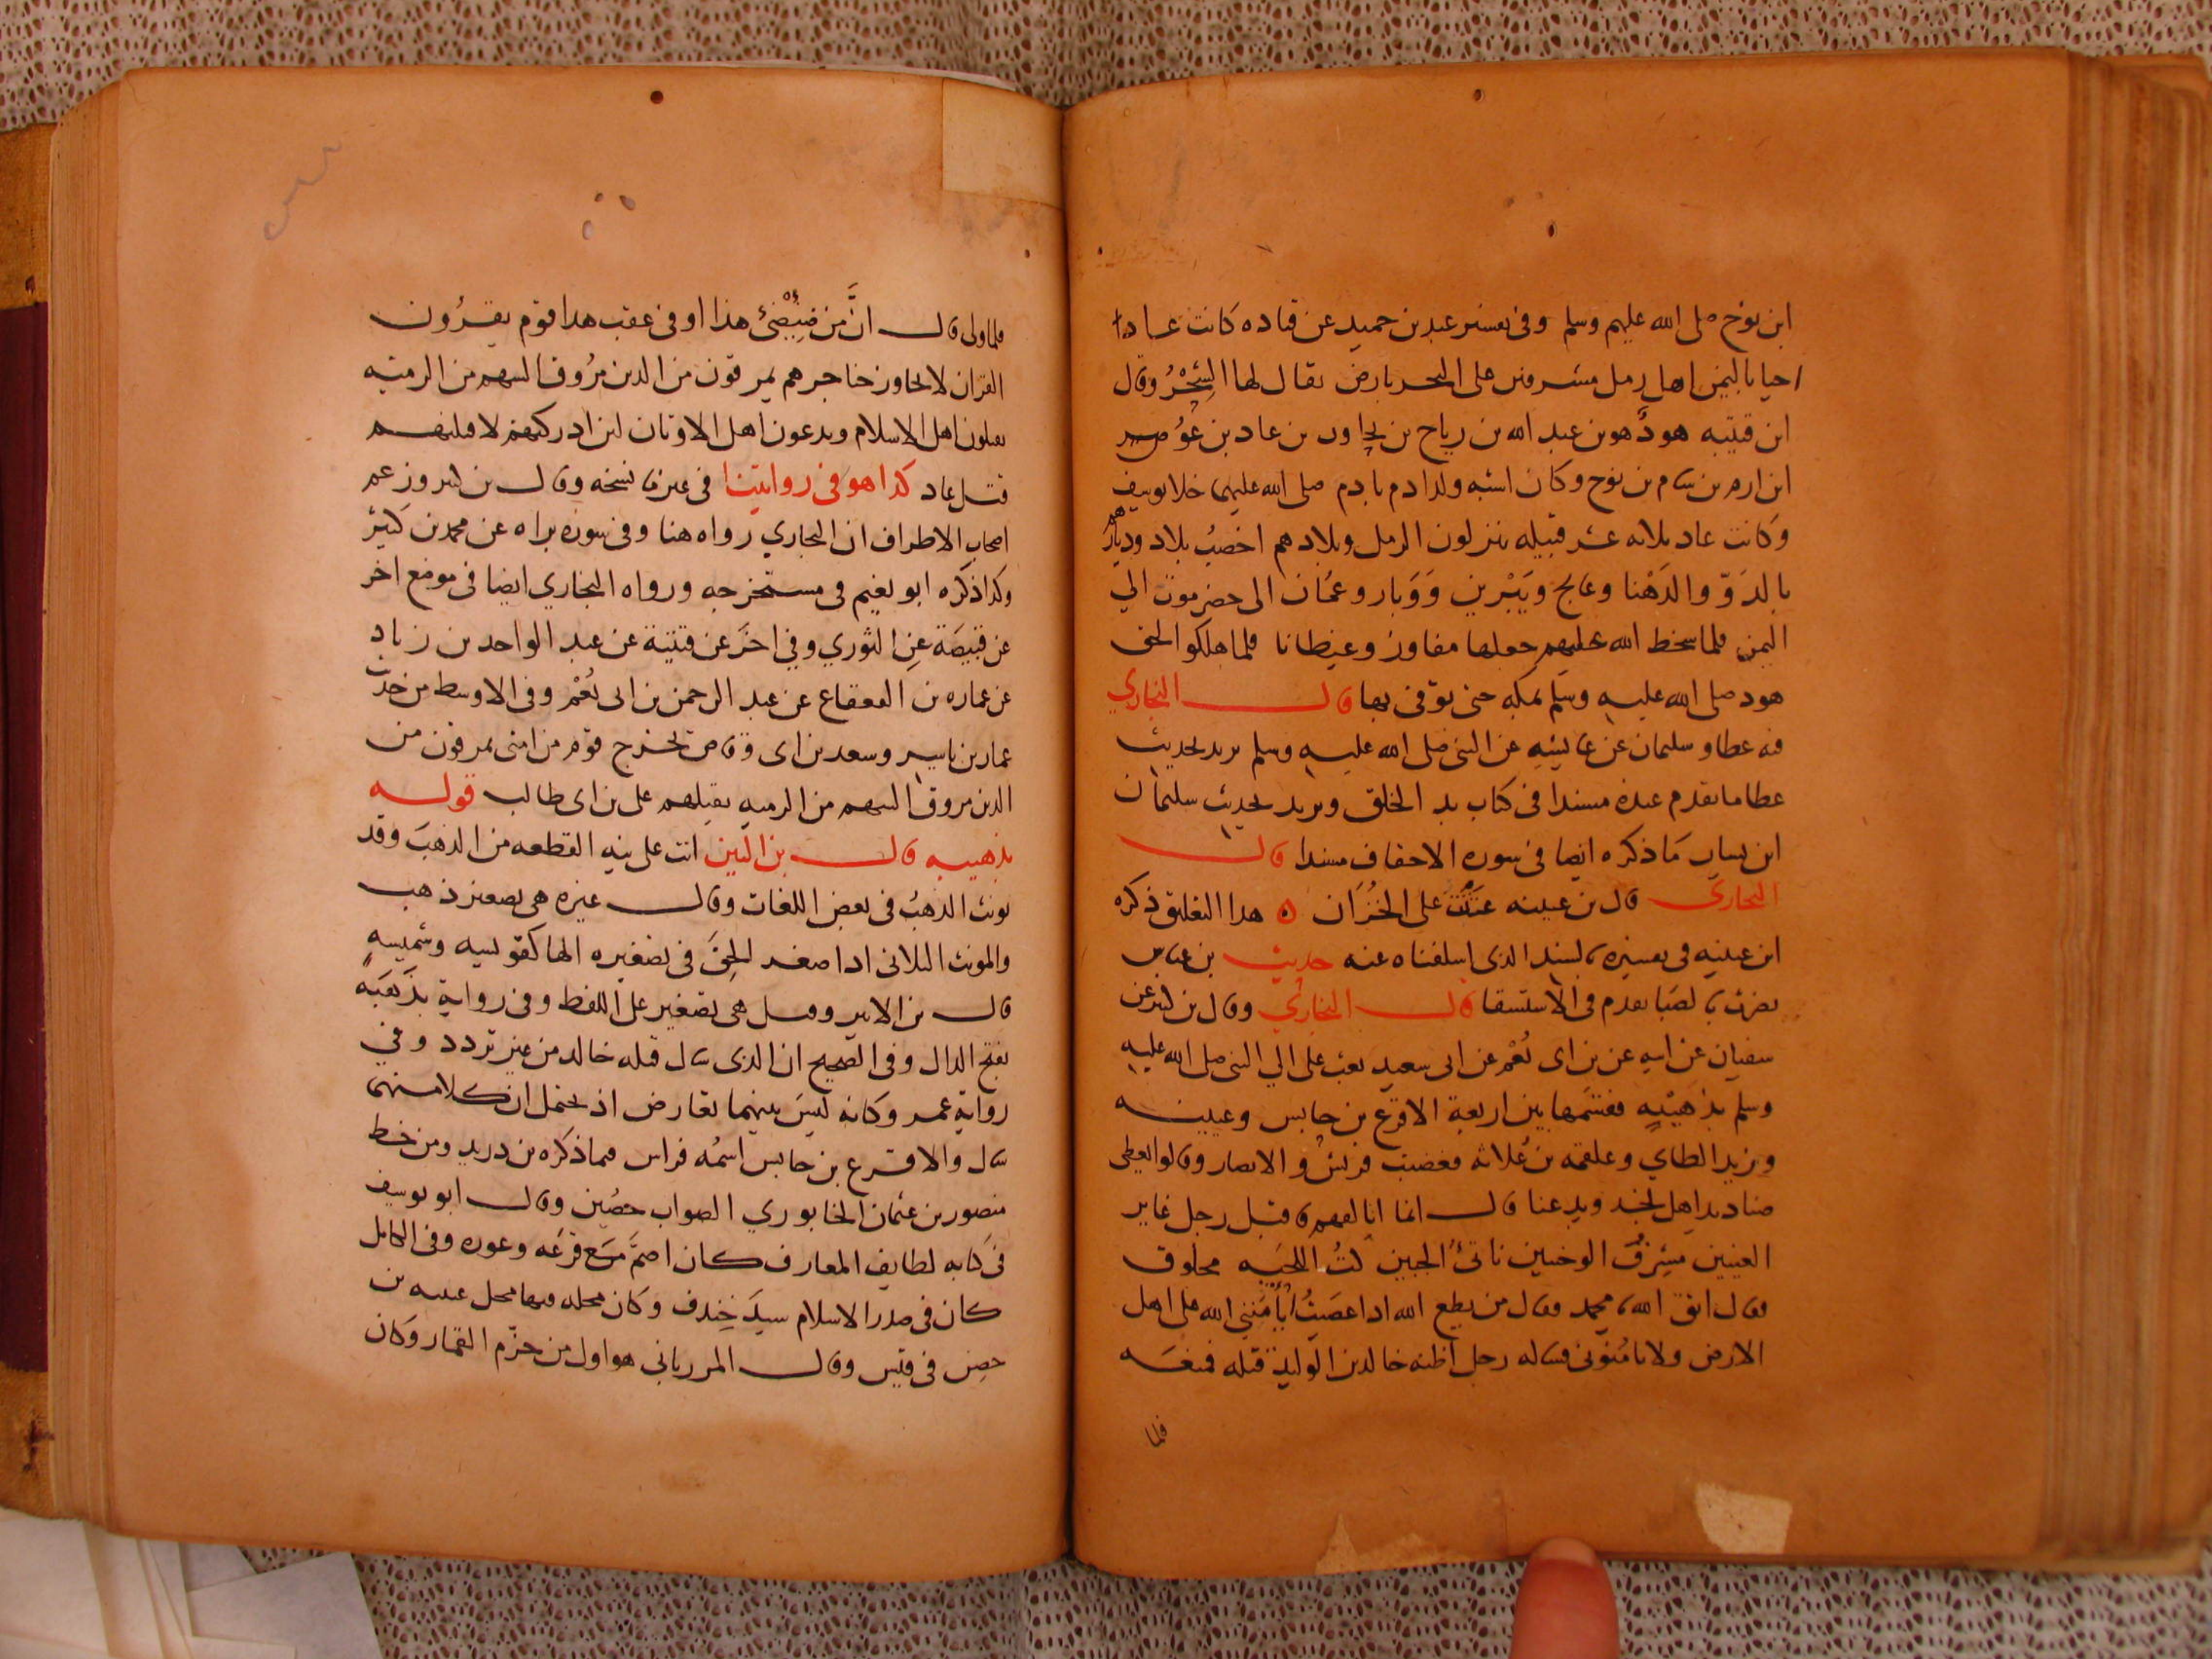 ابن نوح صلى الله عليهم وسلم وفى تفسير عبد بن حميد عن قتاده كانت عاد
احيا باليمن اهل رمل مشرفين على البحر بارض يقال لها الشِّحْرُ وقال
ابن قتيبه هودٌ هو بن عبد الله بن رياح بن بن عاد بن عُوص
ابن ارم بن سام بن نوح وكان اشبه ولد ادم بادم صلى الله عليهما خلا يوسف
وكانت عاد ثلاثه عشر قبيله ينزلون الرمل وبلادهم اخصبُ بلاد وديارهم
بالدَوّ والدَهْنا وعالج ويَبْرين وَوَبار وعُمَان الى حضرموت الي
اليمن فلما سخط الله عليهم جعلها مفاوز وغيطانا فلما هلكوا لحق
هود صلى الله عليه وسلم بمكه حتى توفى بها قال البخاري
فه عطا وسليمان عن عايشه عن النبى صلى الله عليه وسلم يريد بحديث
عطا ما تقدم عنده مسندا فى كتاب بد الخلق ويريد بحديث سليمان
ابن يسار ما ذكره ايضا فى سوره الاحقاف مسندا قال
البخارى قال بن عيينه عَتَتْ على الخُزَان ه هذا التعليق ذكره
ابن عيينه فى تفسيره بالسند الذى اسلفناه عنه حديث بن عباس
نصرت بالصبا تقدم فى الاستسقا قال البخاري وقال بن كثير عن
سفيان عن ابيه عن بن ابى نُعْم عن ابى سعيد بعث على الي النبى صلى الله عليه
وسلم بذهيبه فقسمها بين اربعة الاقرع بن حابس وعيينه
وزيد الطاي وعلقمه بن عُلاثه فغضبت قريش والانصار وقالوا يعطى
صناديد اهل نجد ويدعنا قال انما اتالفهم فاقبل رجل غاير
العينين مشرف الوجنتين ناتئُ الجبين كثُ اللحيه محلوق
فقال اتق الله يا محمد فقال من يطع الله اذا عصيتُ أيأمَنني الله على اهل
الارض ولا تامنونى فساله رجل اظنه خالد بن الوليد قتله فمنعه
فلما
فلما ولى قال انَّ من ضِئْضئ هذا او فى عقب هذا قوم يقرؤن
القران لا يجاوز حناجرهم يمرقون من الدين مُرُوق السهم من الرميه
يقتلون اهل الاسلام ويدعون اهل الاوثان لئن ادركتهم لاقتلنهم
قتل عاد كذا هو فى روايتنا فى غيرما نسخه وقال بن كثير وزعم
اصحاب الاطراف ان البخاري رواه هنا وفى سوره براه عن محمد بن كثير
وكذا ذكره ابو نعيم فى مستخرجه ورواه البخاري ايضا فى موضع اخر
عن قبيصَة عن الثوري وفى اخَر عن قتيبة عن عبد الواحد بن زياد
عن عماره بن القعقاع عن عبد الرحمن بن ابى نُعْم وفى الاوسط من حديث
عمار بن ياسر وسعد بن ابى وقاص يخرج قوم من امتى يمرقون من
الدين مروق السهم من الرميه يقتلهم على بن ابى طالب قوله
بذهيبه قال بن التين انث على نيه القطعه من الذهب وقد
يونث الذهبُ فى بعض اللغات وقال غيره هى تصغير ذهب
والمونث الثلاثى اذا صغر الحِقَ فى تصغيره الها كقويسه وشميسه
قال بن الاثير وقيل هى تصغير على اللفظ وفى رواية بذَهَبَه
بفتح الذال وفى الصحيح ان الذى سال قتله خالد من غير تردد وفي
رواية عمر وكانه ليسَ بينهما تعارض اذ يحتمل ان كلا منهما
سال والاقرع بن حابس اسمُه فراس فيما ذكره بن دريد ومن خط
منصور بن عثمان الخابوري الصواب حصُين وقال ابو يوسف
فى كتابه لطايف المعارف كان اصمَّ مع قرَعَه وعوره وفى الكامل
كان فى صدر الاسلام سيدَ خِندف وكان محله فيها محل عيينه بن
حصن فى قيس وقال المرزبانى هو اول من حرّم القمار وكان